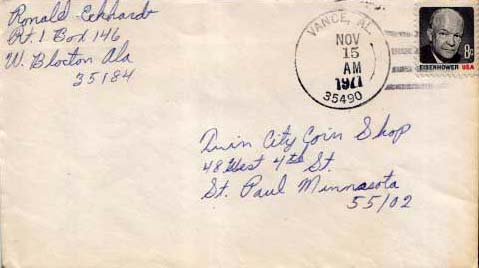 Ronald Eckhardt
Rt. 1 Box 146
W. Blocton Ala
35184
VANCE, AL
NOV
15
AM
1971
35490
8c
EISENHOWER USA
Twin City Coin Shop
48 West 4th St.
St. Paul Minnesota
55102